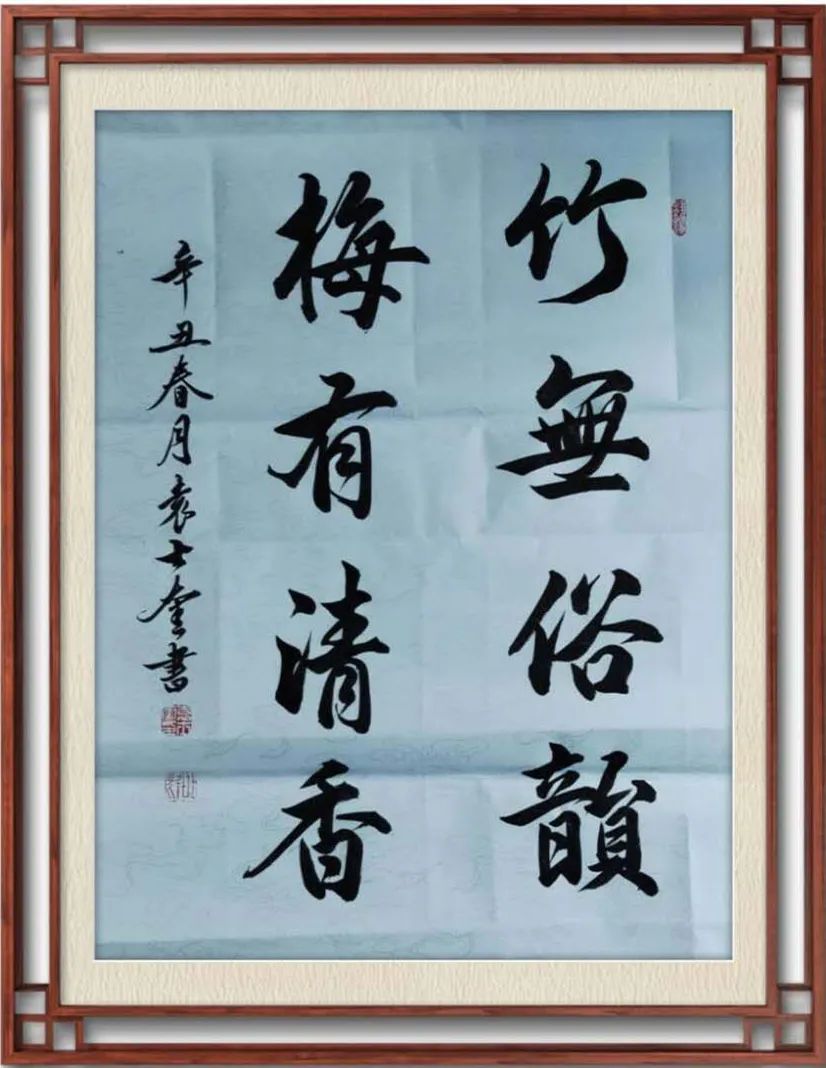 竹無俗韻
梅有清香
辛丑春月袁士奎書